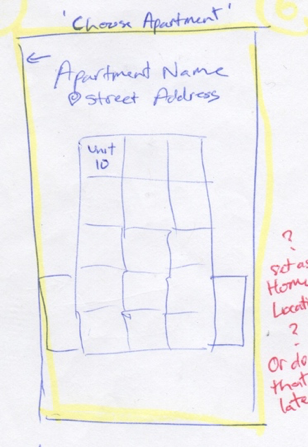 'Choose Apartment'
←
Apartment Name
street Address
unit
10
?
set as
Home
Locati
?
-
Or do
that
late